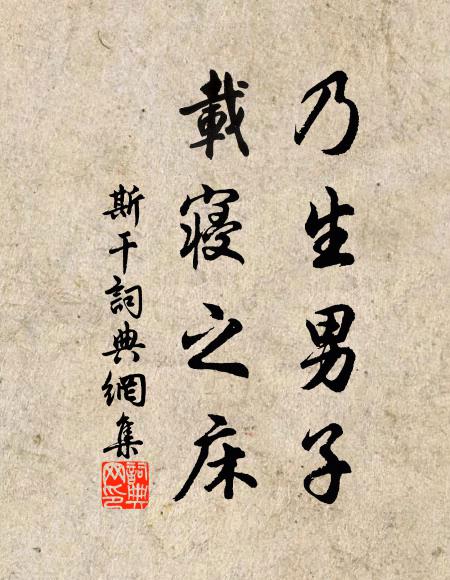 乃生男子
載寝之床
斯干詞典網集
詞典网印